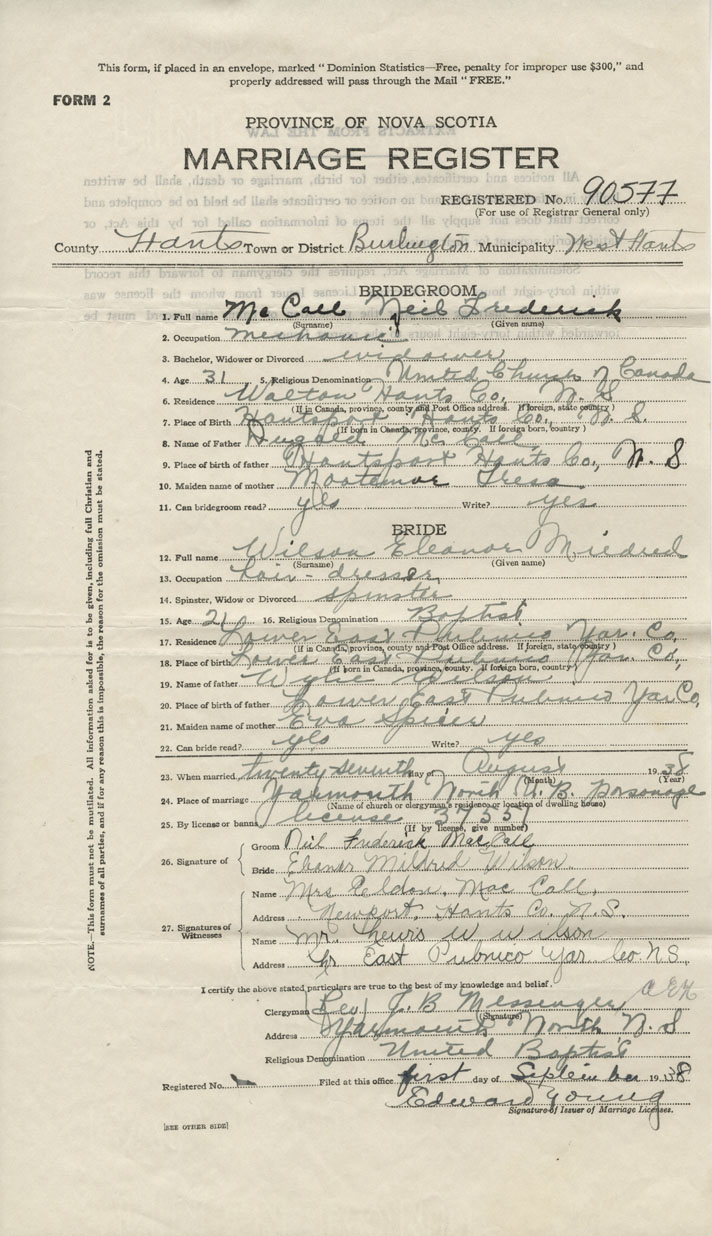 This form, if placed in an envelope, marked "Dominion Statistics—Free, penalty for improper use $300," and
properly addressed will pass through the Mail "FREE."
FORM 2
PROVINCE OF NOVA SCOTIA
MARRIAGE REGISTER
REGISTERED No. 90577
(For use of Registrar General only)
County Hants Town or District Burlington Municipality West Hants
BRIDEGROOM
1. Full name McCall Neil Frederick
(Surname) (Given name)
2. Occupation mechanic
3. Bachelor, Widower or Divorced widower
4. Age 31 5. Religious Denomination United Church of Canada
6. Residence Walton Hants Co., N. S
(If in Canada, province, county and Post Office address. If foreign, state country)
7. Place of Birth Hantsport Hants Co., N. S.
(If born in Canada, province, county. If foreign, country)
8. Name of Father Dugald McCall
9. Place of birth of father Hantsport Hants Co., N. S
10. Maiden name of mother Tresa
11. Can bridegroom read? yes Write? yes
BRIDE
12. Full name Wilson Eleanor Mildred
(Surname) (Given name)
13. Occupation hair-dresser
14. Spinster, Widow or Divorced spinster
15. Age 21 16. Religious Denomination Baptist
17. Residence Lower East Pubnico Yar. Co,
(If in Canada, province, county and Post Office address. If foreign, state country)
18. Place of birth Lower East Pubnico Yar. Co,
(If born in Canada, province, county. If foreign, country)
19. Name of father Wylie Wilson
20. Place of birth of father Lower East Pubnico Yar Co,
21. Maiden name of mother Eva Spicer
22. Can bride read? yes Write? yes
23. When married twenty seventh day of August 1938
(Month) (Year)
24. Place of marriage Yarmouth North U. B. Parsonage
(Name of church or clergyman's residence or location of dwelling house)
25. By license or banns license 37557
(If by license, give number)
26. Signature of
Groom Neil Frederick MacCall
Bride Eleanor Mildred Wilson
27. Signatures of Witnesses
Name Mrs Eeldon. Mac Call.
Address Newport, Hants Co. N. S.
Name Mr. Lewis W Wilson
Address Lr East Pubnico Yar Co N.S.
I certify the above stated particulars are true to the best of my knowledge and belief.
Clergyman (Rev) J. B Messenger
(Signature)
Address Yarmouth North N. S
Religious Denomination United Baptist
Registered No. Filed at this office first day of September 1938
Edward Young
Signature of Issuer of Marriage Licenses.
[SEE OTHER SIDE]
NOTE.—This form must not be mutilated. All information asked for is to be given, including full Christian and
surnames of all parties, and if for any reason this is impossible, the reason for the omission must be stated.